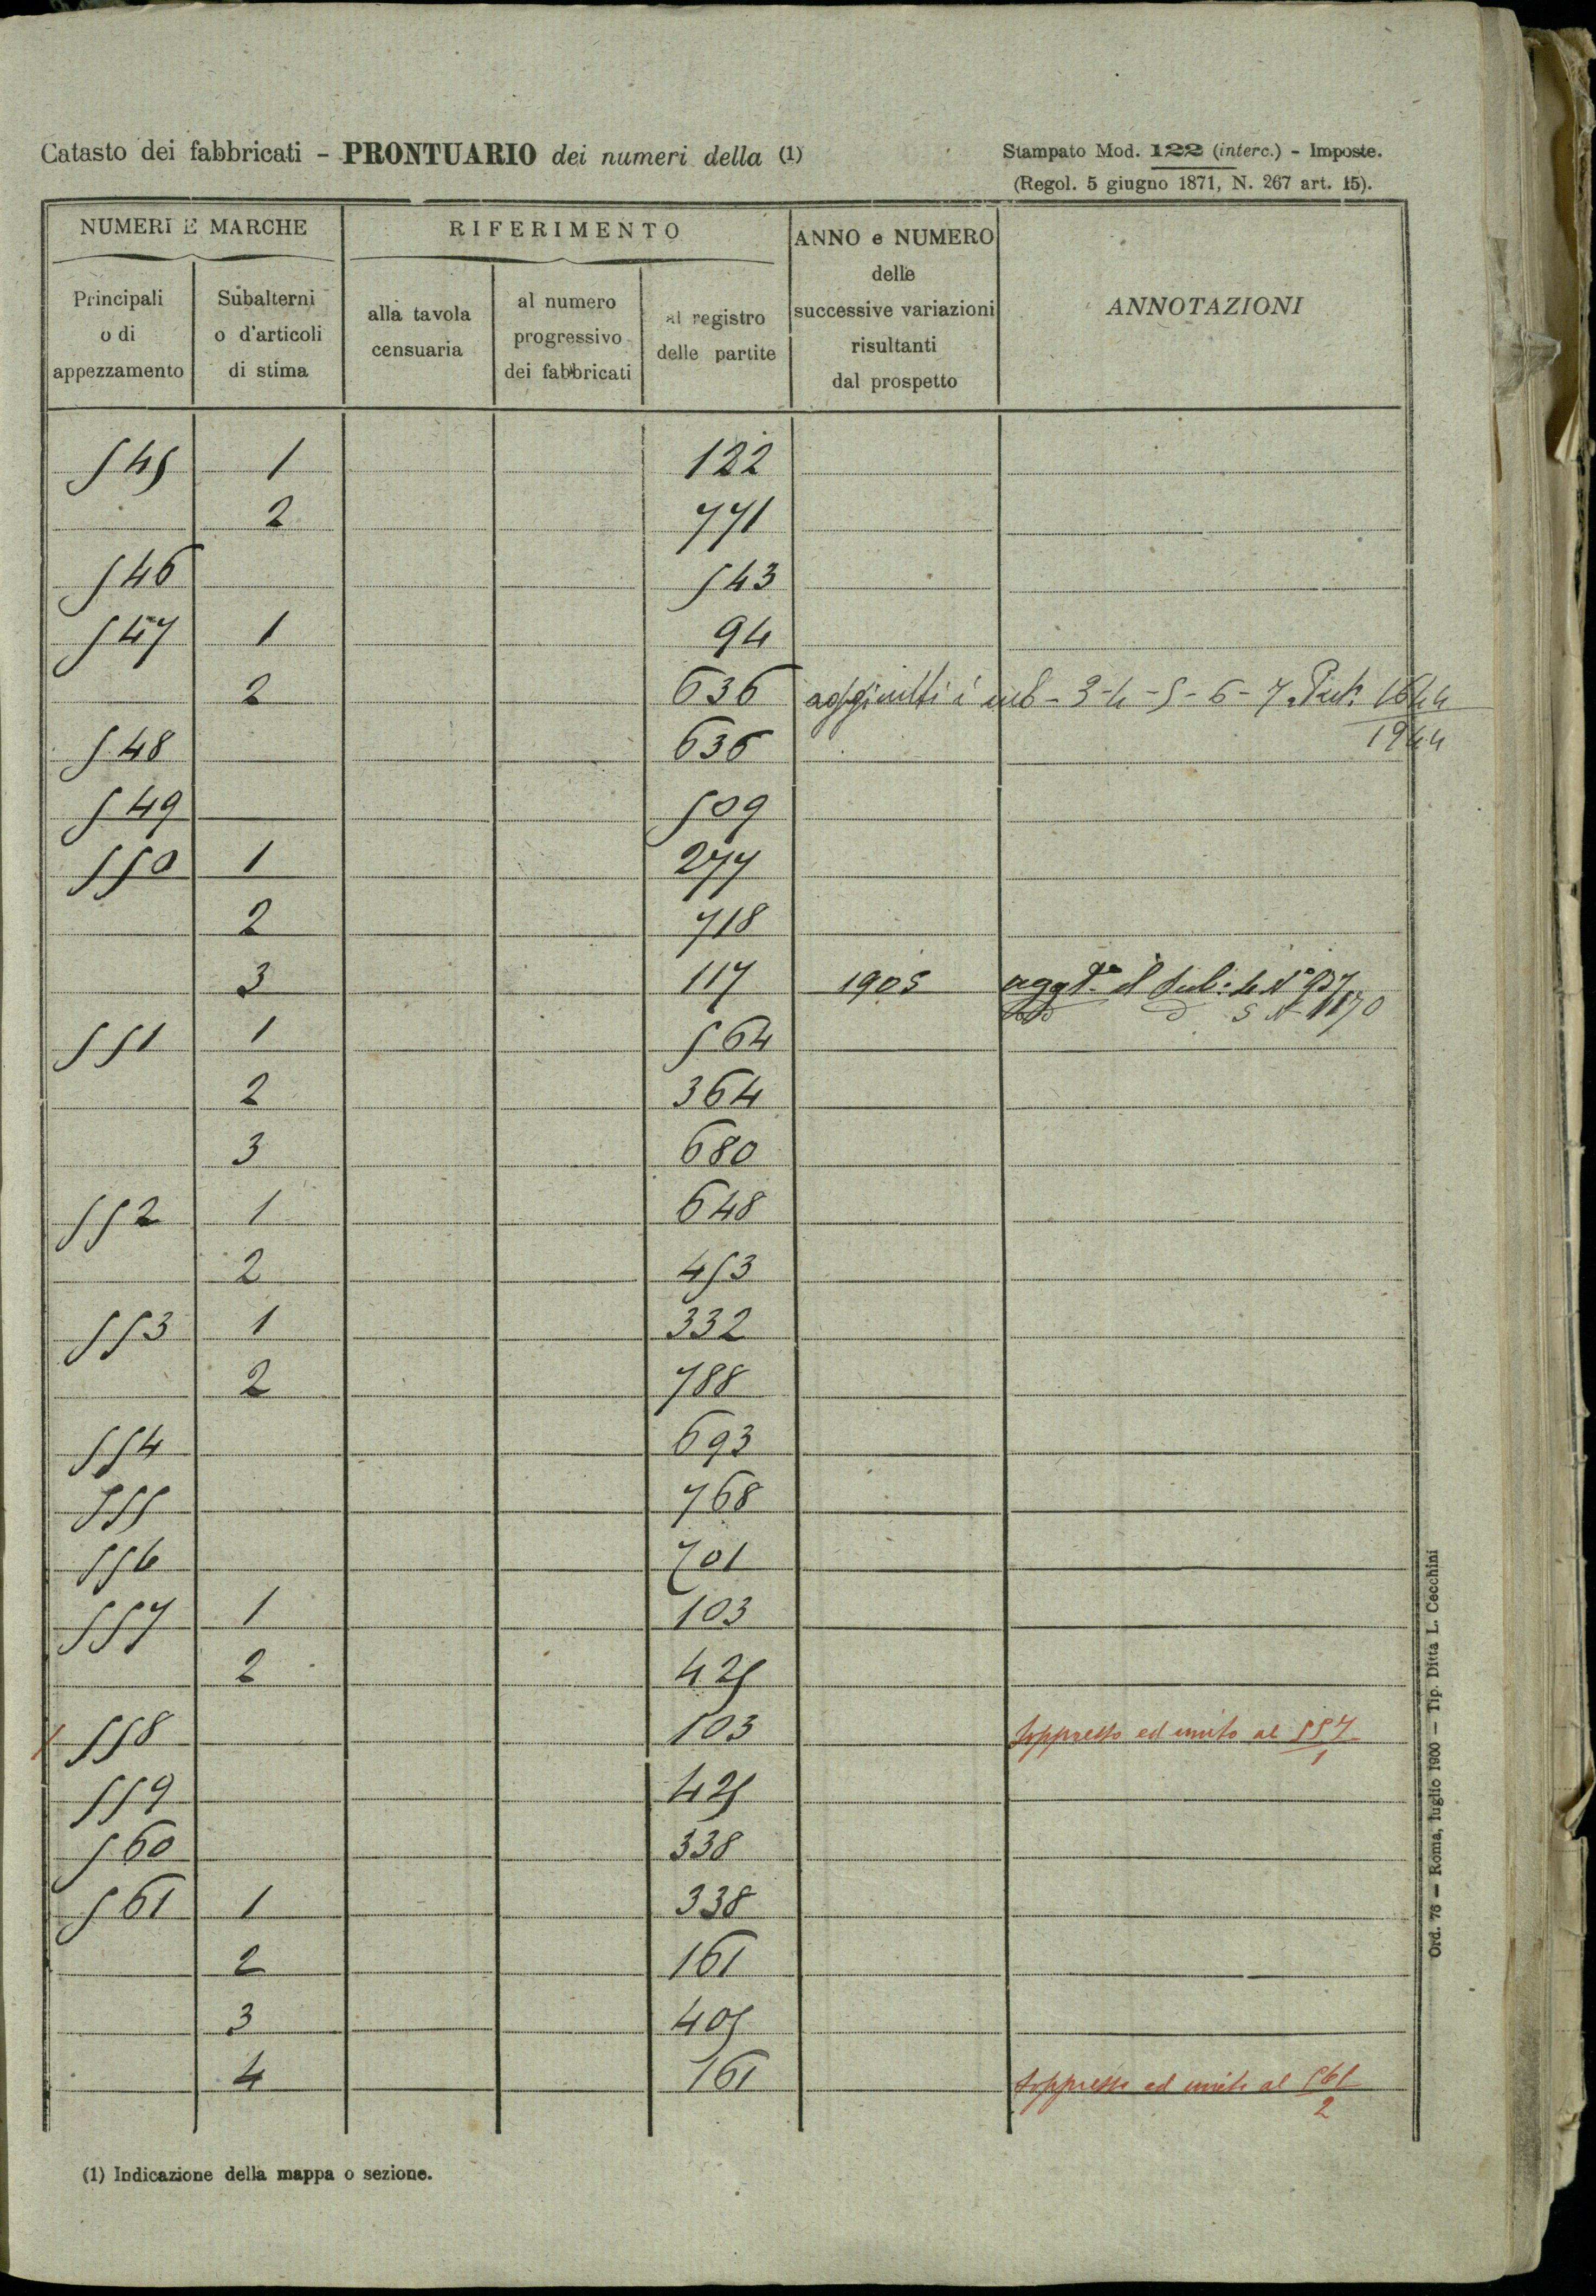 Catasto dei fabbricati - PRONTUARIO dei numeri della (1)
Stampato Mod. 122 (interc.) - Imposte.
(Regol. 5 giugno 1871, N. 267 art. 15).
NUMERI E MARCHE
RIFERIMENTO
ANNO e NUMERO
delle
successive variazioni
risultanti
dal prospetto
ANNOTAZIONI
Principali
o di
appezzamento
Subalterni
o d'articoli
di stima
alla tavola
censuaria
al numero
progressivo
dei fabbricati
al registro
delle partite
545 1 122
2 771
546 543
547 1 94
2 636 aggiunti i sub - 3-4-5-6-7. Part. 1644
1944
548 636
549 509
550 1 277
2 718
3 117 1905 aggto il sub: 4 N° 957
5 N 1170
551 1 564
2 364
3 680
552 1 648
2 453
553 1 332
2 788
554 693
555 768
556 701
557 1 103
2 425
558 103 Soppresso ed unito al 557
1
559 425
560 338
561 1 338
2 161
3 405
4 161 Soppresso ed unito al 561
2
(1) Indicazione della mappa o sezione.
Ord. 76 — Roma, luglio 1900 — Tip. Ditta L. Cecchini